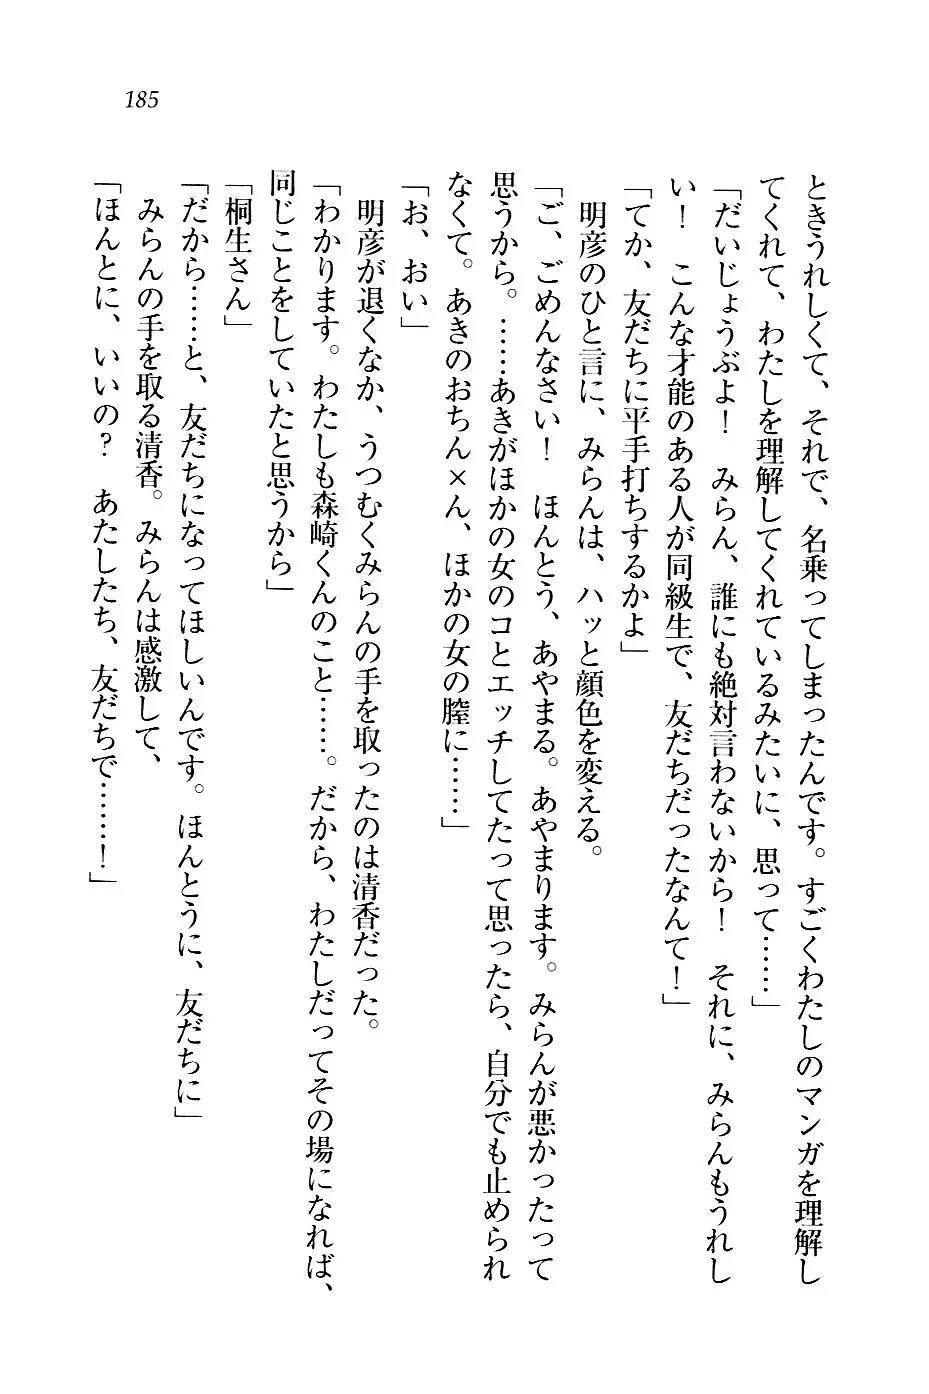 185
ときうれしくて、それで、名乗ってしまったんです。すごくわたしのマンガを理解し
てくれて、わたしを理解してくれているみたいに、思って……」
「だいじょうぶよ！　みらん、誰にも絶対言わないから！　それに、みらんもうれし
い！　こんな才能のある人が同級生で、友だちだったなんて！」
「てか、友だちに平手打ちするかよ」
明彦のひと言に、みらんは、ハッと顔色を変える。
「ご、ごめんなさい！　ほんとう、あやまる。あやまります。みらんが悪かったって
思うから。……あきがほかの女のコとエッチしてたって思ったら、自分でも止められ
なくて。あきのおちん×ん、ほかの女の膣に……」
「お、おい」
明彦が退くなか、うつむくみらんの手を取ったのは清香だった。
「わかります。わたしも森崎くんのこと……。だから、わたしだってその場になれば、
同じことをしていたと思うから」
「桐生さん」
「だから……と、友だちになってほしいんです。ほんとうに、友だちに」
みらんの手を取る清香。みらんは感激して、
「ほんとに、いいの？　あたしたち、友だちで……！」